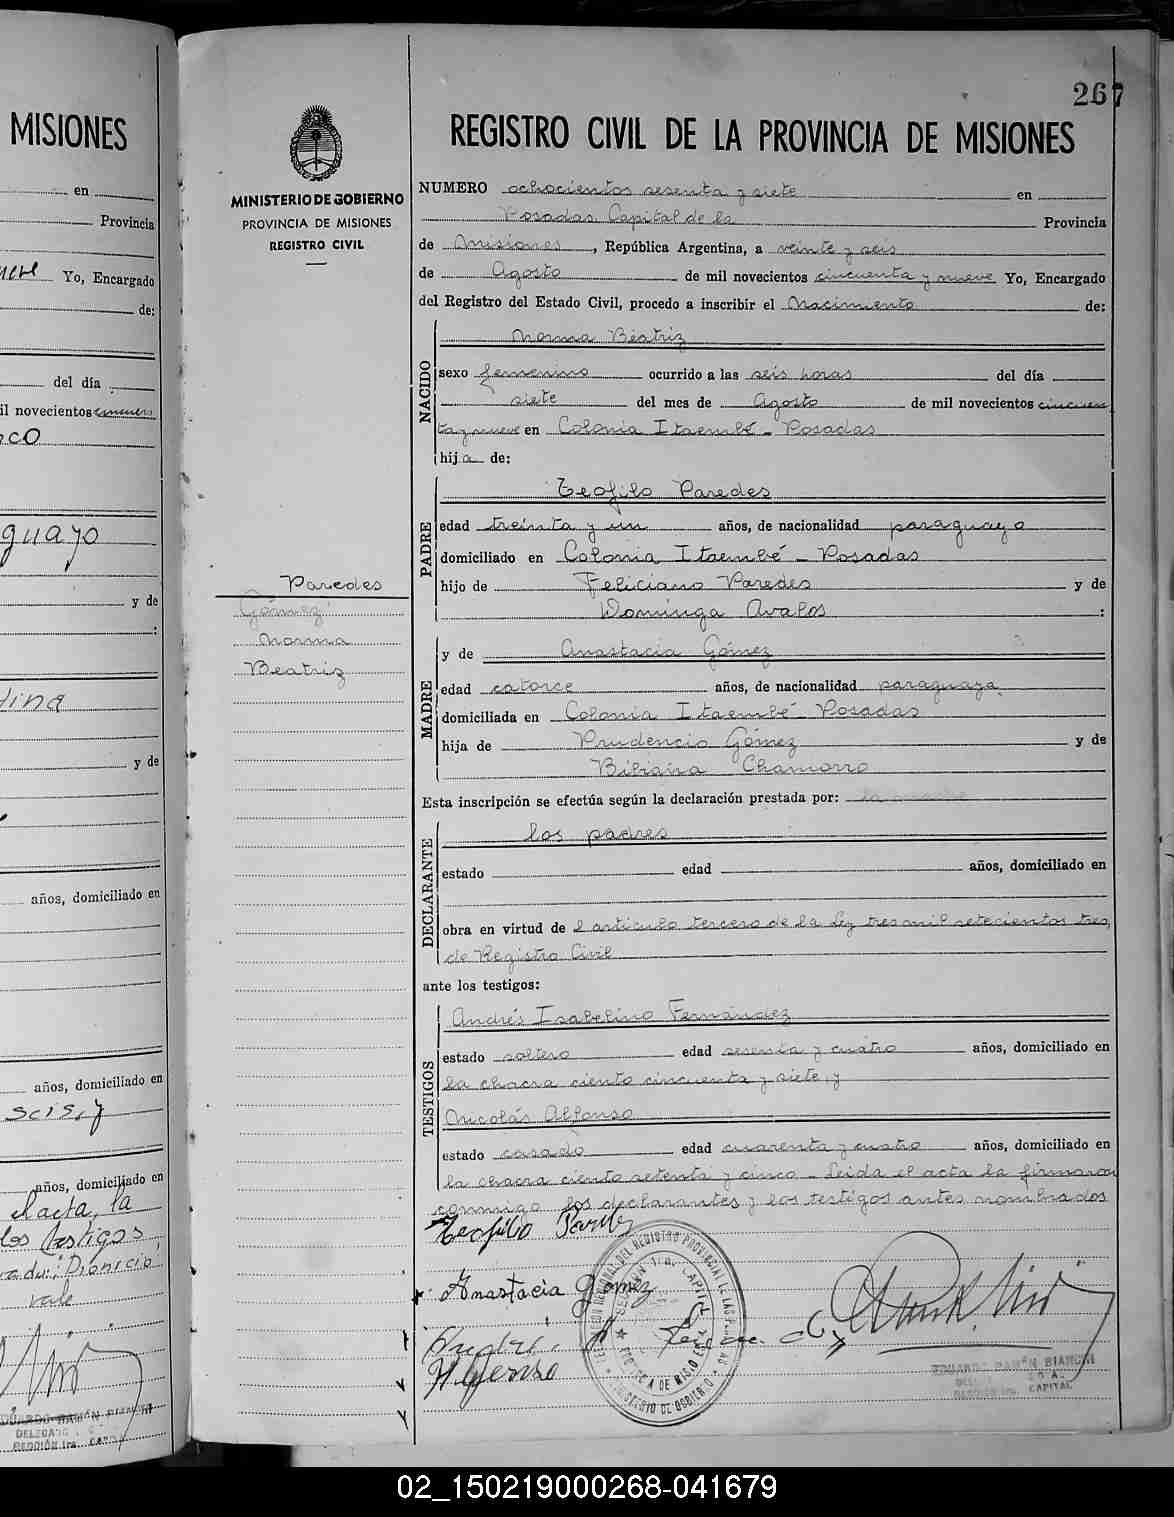 MISIONES
en
Provincia
Yo, Encargado
de:
del día
il novecientos
guayo
y de
y de
años, domiciliado en
años, domiciliado en
años, domiciliado en
el acta, la
los testigos
Dionicio
vale
MINISTERIO DE GOBIERNO
PROVINCIA DE MISIONES
REGISTRO CIVIL
Paredes
Gómez
Norma
Beatriz
267
REGISTRO CIVIL DE LA PROVINCIA DE MISIONES
NUMERO ochocientos sesenta y siete en
Posadas Capital de la Provincia
de Misiones, República Argentina, a veinte y seis
de Agosto de mil novecientos cincuenta y nueve Yo, Encargado
del Registro del Estado Civil, procedo a inscribir el Nacimiento de:
NACIDO
Norma Beatriz
sexo femenino ocurrido a las seis horas del día
siete del mes de Agosto de mil novecientos cincuen
ta y nueve en Colonia Itaembé - Posadas
hija de:
PADRE
Teofilo Paredes
edad treinta y un años, de nacionalidad paraguayo
domiciliado en Colonia Itaembé - Posadas
hijo de Feliciano Paredes y de
Dominga Avalos :
MADRE
y de Anastacia Gómez
edad catorce años, de nacionalidad paraguaya
domiciliada en Colonia Itaembé - Posadas
hija de Prudencio Gómez y de
Chamorro
Esta inscripción se efectúa según la declaración prestada por:
DECLARANTE
los padres
estado edad años, domiciliado en
obra en virtud de l artículo tercero de la Ley tres mil setecientos tres,
de Registro Civil
ante los testigos:
TESTIGOS
Andrés Isabelino Fernández
estado soltero edad sesenta y cuatro años, domiciliado en
la chacra ciento cincuenta y siete, y
Nicolás Alfonso
estado casado edad cuarenta y cuatro años, domiciliado en
la chacra ciento setenta y cinco - Leida el acta la firmaron
conmigo los declarantes y los testigos antes nombrados
Teofilo
Anastacia Gomez
EDUARDO RAMÓN BIANCHI
CAPITAL
02_150219000268-041679